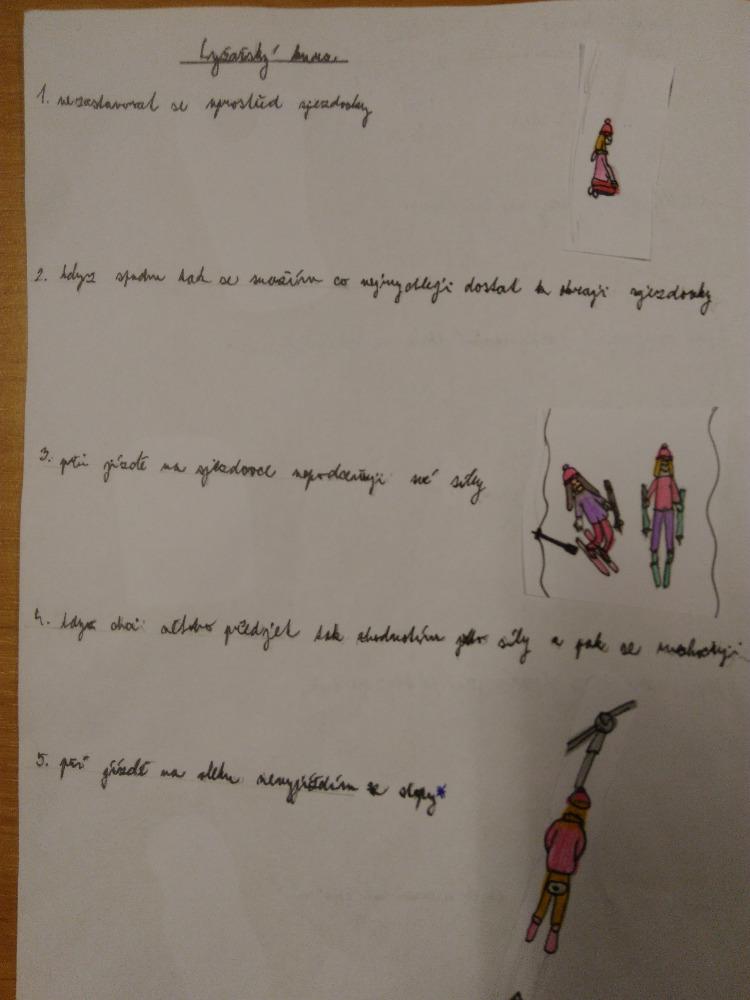 Lyžařský kurs.
1. nezastavovat se uprostřed sjezdovky
2. když spadnu tak se snažím co nejrychleji dostat k okraji sjezdovky
3. při jízdě na sjezdovce nepodceňuji své síly
4. když chci někoho předjet tak zhodnotím jeho síly a pak se rozhoduji
5. při jízdě na vleku nevyjíždím ze stopy*